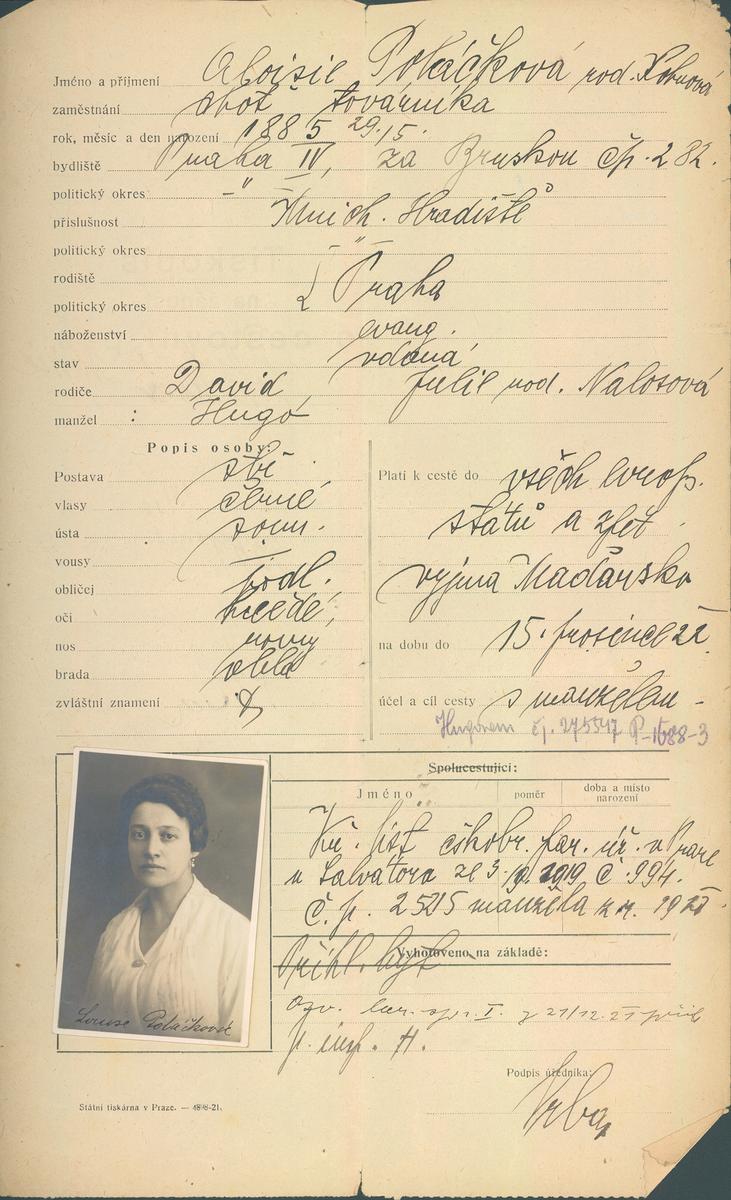 Jméno a příjmení Aloisie Poláčková rod. Kohnová
zaměstnání chot továrníka
rok, měsíc a den narození 1885 29./5.
bydliště Praha IV, za Bruskou čp. 282.
politický okres –"–
příslušnost Mnich. Hradiště
politický okres –"–
rodiště Praha
politický okres
náboženství evang.
stav vdaná
rodiče David, Julie rod.
manžel : Hugo
Popis osoby:
Postava stř.
vlasy černé
ústa soum.
vousy —
obličej podl.
oči hnědé,
nos rovný
brada oblá
zvláštní znamení
Platí k cestě do všech evrop.
států a zpět
vyjma Maďarsko
na dobu do 15. prosince 22
účel a cíl cesty s manželem –
Hugonem čj. 275547 P-1688-3
Spolucestující:
Jméno poměr doba a místo narození
Kř. list čskobr. far. úř. v Praze
u Salvátora ze 3. 1919 č. 994.
č. p. 2525 manžela z r. 1921.
Vyhotoveno na základě:
Přihl. byt
I. z 21/12. 21
p. insp. H.
Podpis úředníka:
Vrba
Louise Poláčková
Státní tiskárna v Praze. — -21.